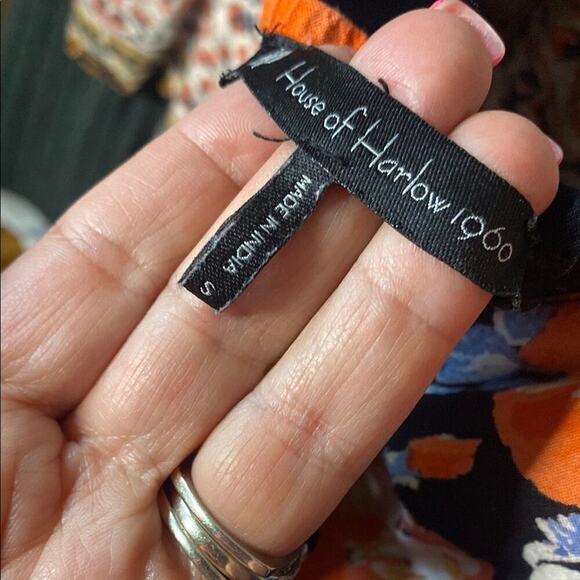 House of Harlow 1960
MADE IN INDIA
S